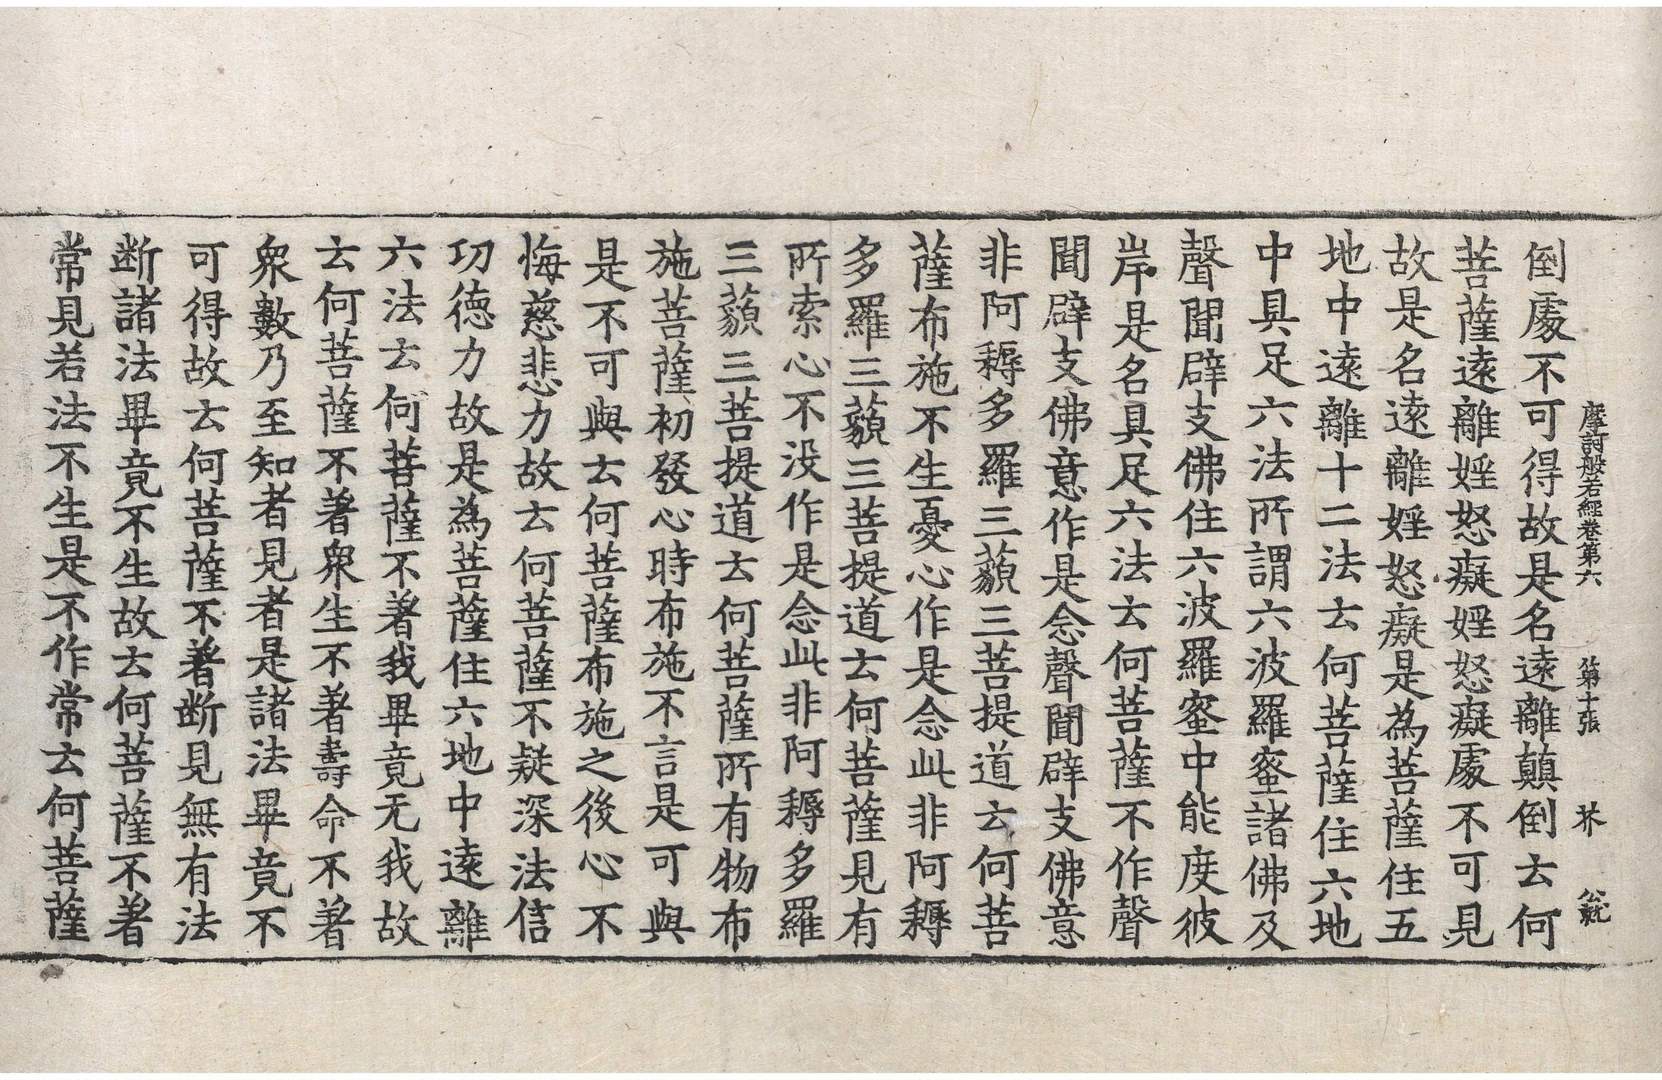 摩訶般若經卷第六 第十張 芥 公就
倒處不可得故是名遠離顛倒去何
菩薩遠離婬怒癡婬怒癡處不可見
故是名遠離婬怒癡是為菩薩住五
地中遠離十二法去何菩薩住六地
中具足六法所謂六波羅蜜諸佛及
聲聞辟支佛住六波羅蜜中能度彼
岸是名具足六法去何菩薩不作聲
聞辟支佛意作是念聲聞辟支佛意
非阿耨多羅三藐三菩提道去何菩
薩布施不生憂心作是念此非阿耨
多羅三藐三菩提道去何菩薩見有
所索心不没作是念此非阿耨多羅
三藐三菩提道去何菩薩所有物布
施菩薩初發心時布施不言是可與
是不可與去何菩薩布施之後心不
悔慈悲力故去何菩薩不疑深法信
功德力故是為菩薩住六地中遠離
六法去何菩薩不著我畢竟无我故
去何菩薩不著衆生不著壽命不著
衆數乃至知者見者是諸法畢竟不
可得故去何菩薩不著断見無有法
断諸法畢竟不生故去何菩薩不著
常見若法不生是不作常去何菩薩